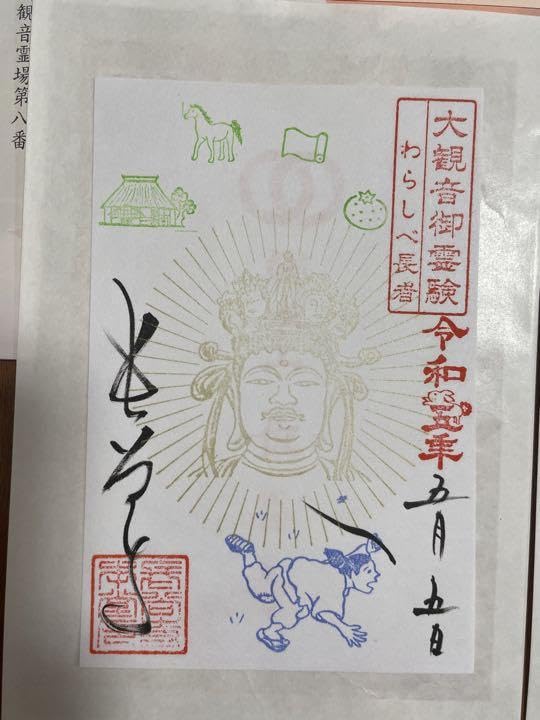 大観音御霊験
わらしべ長者
令和五年
五月五日
長谷寺
観音霊場第八番